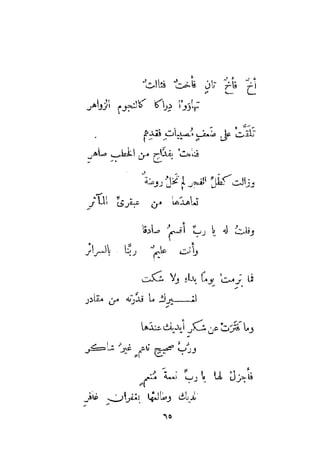 أخٌ فأخٌ ثانٍ فأختٌ فثالثٌ
تهاوَوْا دراكا كالنجوم الزواهر
تلقَّتْ على ضعفٍ مصيباتِ فقدهم
فناءت بفدَّاحٍ من الخطب صاهرِ
وزالت كطلّ الفجر لم تخلُ روعةٌ
تعاهدها من عبقريِّ المآثرِ
وقلتُ له يا ربّ أقسمُ صادقا
وأنت عليمٌ ربَّنا بالسرائرْ
فما برِمتْ يومًا بداءٍ ولا شكت
لغيرك ما قدَّرته من مقادر
وما قصَّرتْ عن شكرِ أيديك عندها
وربَّ صحيحٍ ناعمٍ غيرُ شاكر
فأجزلْ لها يا ربّ نعمةَ مُنعمٍ
لديك وطالعها بغفرانِ غافرِ
٦٥